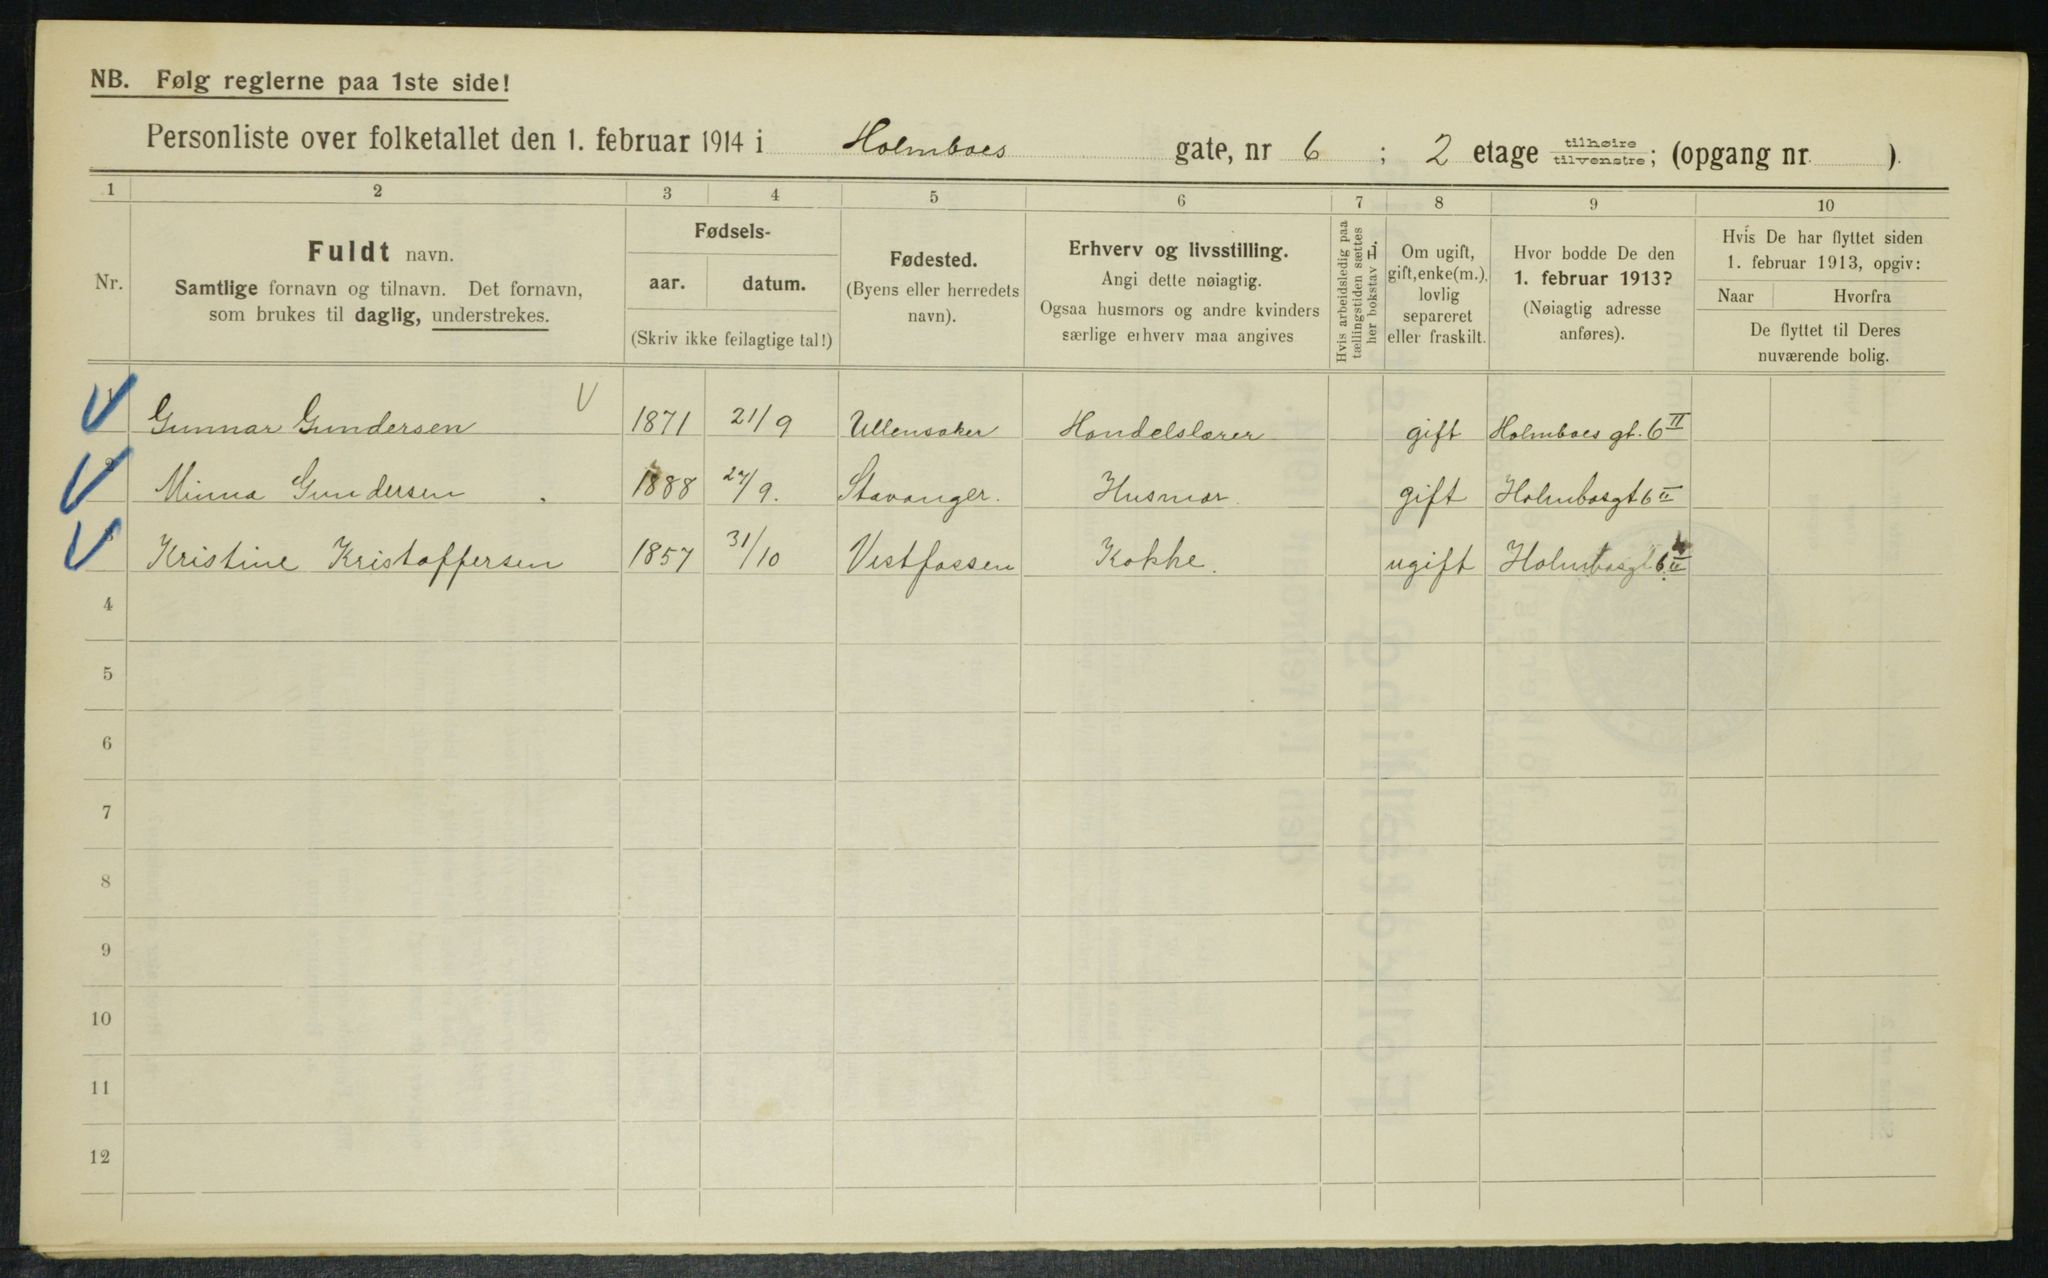 NB. Følg reglerne paa 1ste side!
Personliste over folketallet den 1. februar 1914 i Holmboes gate, nr 6 ; 2 etage tilhøire tilvenstre; (opgang nr. ).
1 2 3 4 5 6 7 8 9 10
Nr.
Fuldt navn.
Samtlige fornavn og tilnavn. Det fornavn,
som brukes til daglig, understrekes.
Fødsels-
aar. datum.
(Skriv ikke feilagtige tal!)
Fødested.
(Byens eller herredets
navn).
Erhverv og livsstilling.
Angi dette nøiagtig.
Ogsaa husmors og andre kvinders
særlige erhverv maa angives
Hvis arbeidsledig paa
tællingstiden sættes
her bokstav L.
Om ugift,
gift, enke(m.),
lovlig
separeret
eller fraskilt.
Hvor bodde De den
1. februar 1913?
(Nøiagtig adresse
anføres).
Hvis De har flyttet siden
1. februar 1913, opgiv:
Naar Hvorfra
De flyttet til Deres
nuværende bolig.
1 Gunnar Gundersen V 1871 21/9 Ullensaker Handelslærer gift Holmboes gt. 6 II
2 Minna Gundersen . 1888 27/9. Stavanger. Husmor. gift Holmbosgt 6 II
3 Kristine Kristoffersen 1857 31/10 Vestfossen Kokke. ugift Holmbosgt. 6 II
4
5
6
7
8
9
10
11
12